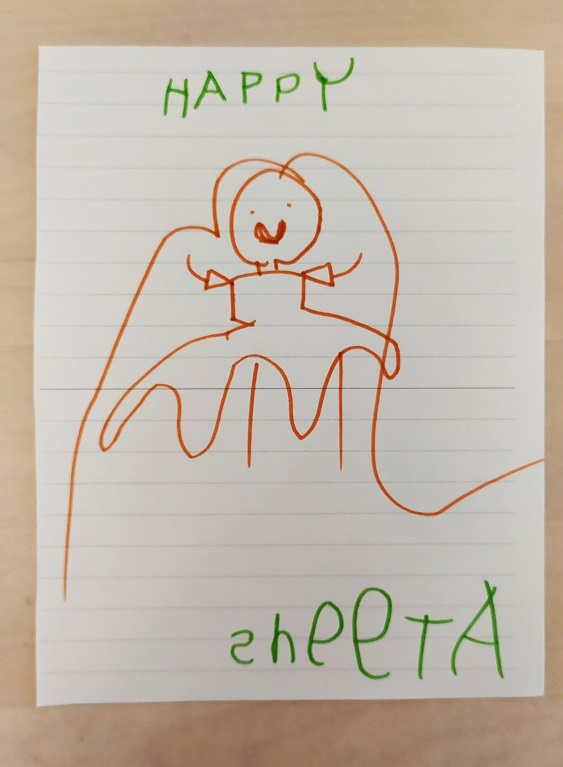 HAPPY
sheeTA